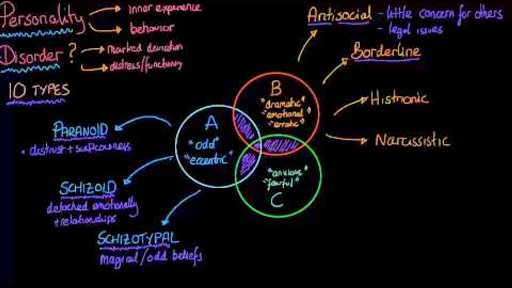 Personality
inner experience
behavior
Disorder ?
marked deviation
distress/functioning
10 TYPES
PARANOID
distrust + suspiciousness
SCHIZOID
detached emotionally
+ relationships
SCHIZOTYPAL
magical/odd beliefs
A
"odd"
"eccentric"
B
"dramatic"
"emotional"
"erratic"
"anxious"
"fearful"
C
Antisocial - little concern for others
- legal issues
Borderline
Histrionic
Narcissistic